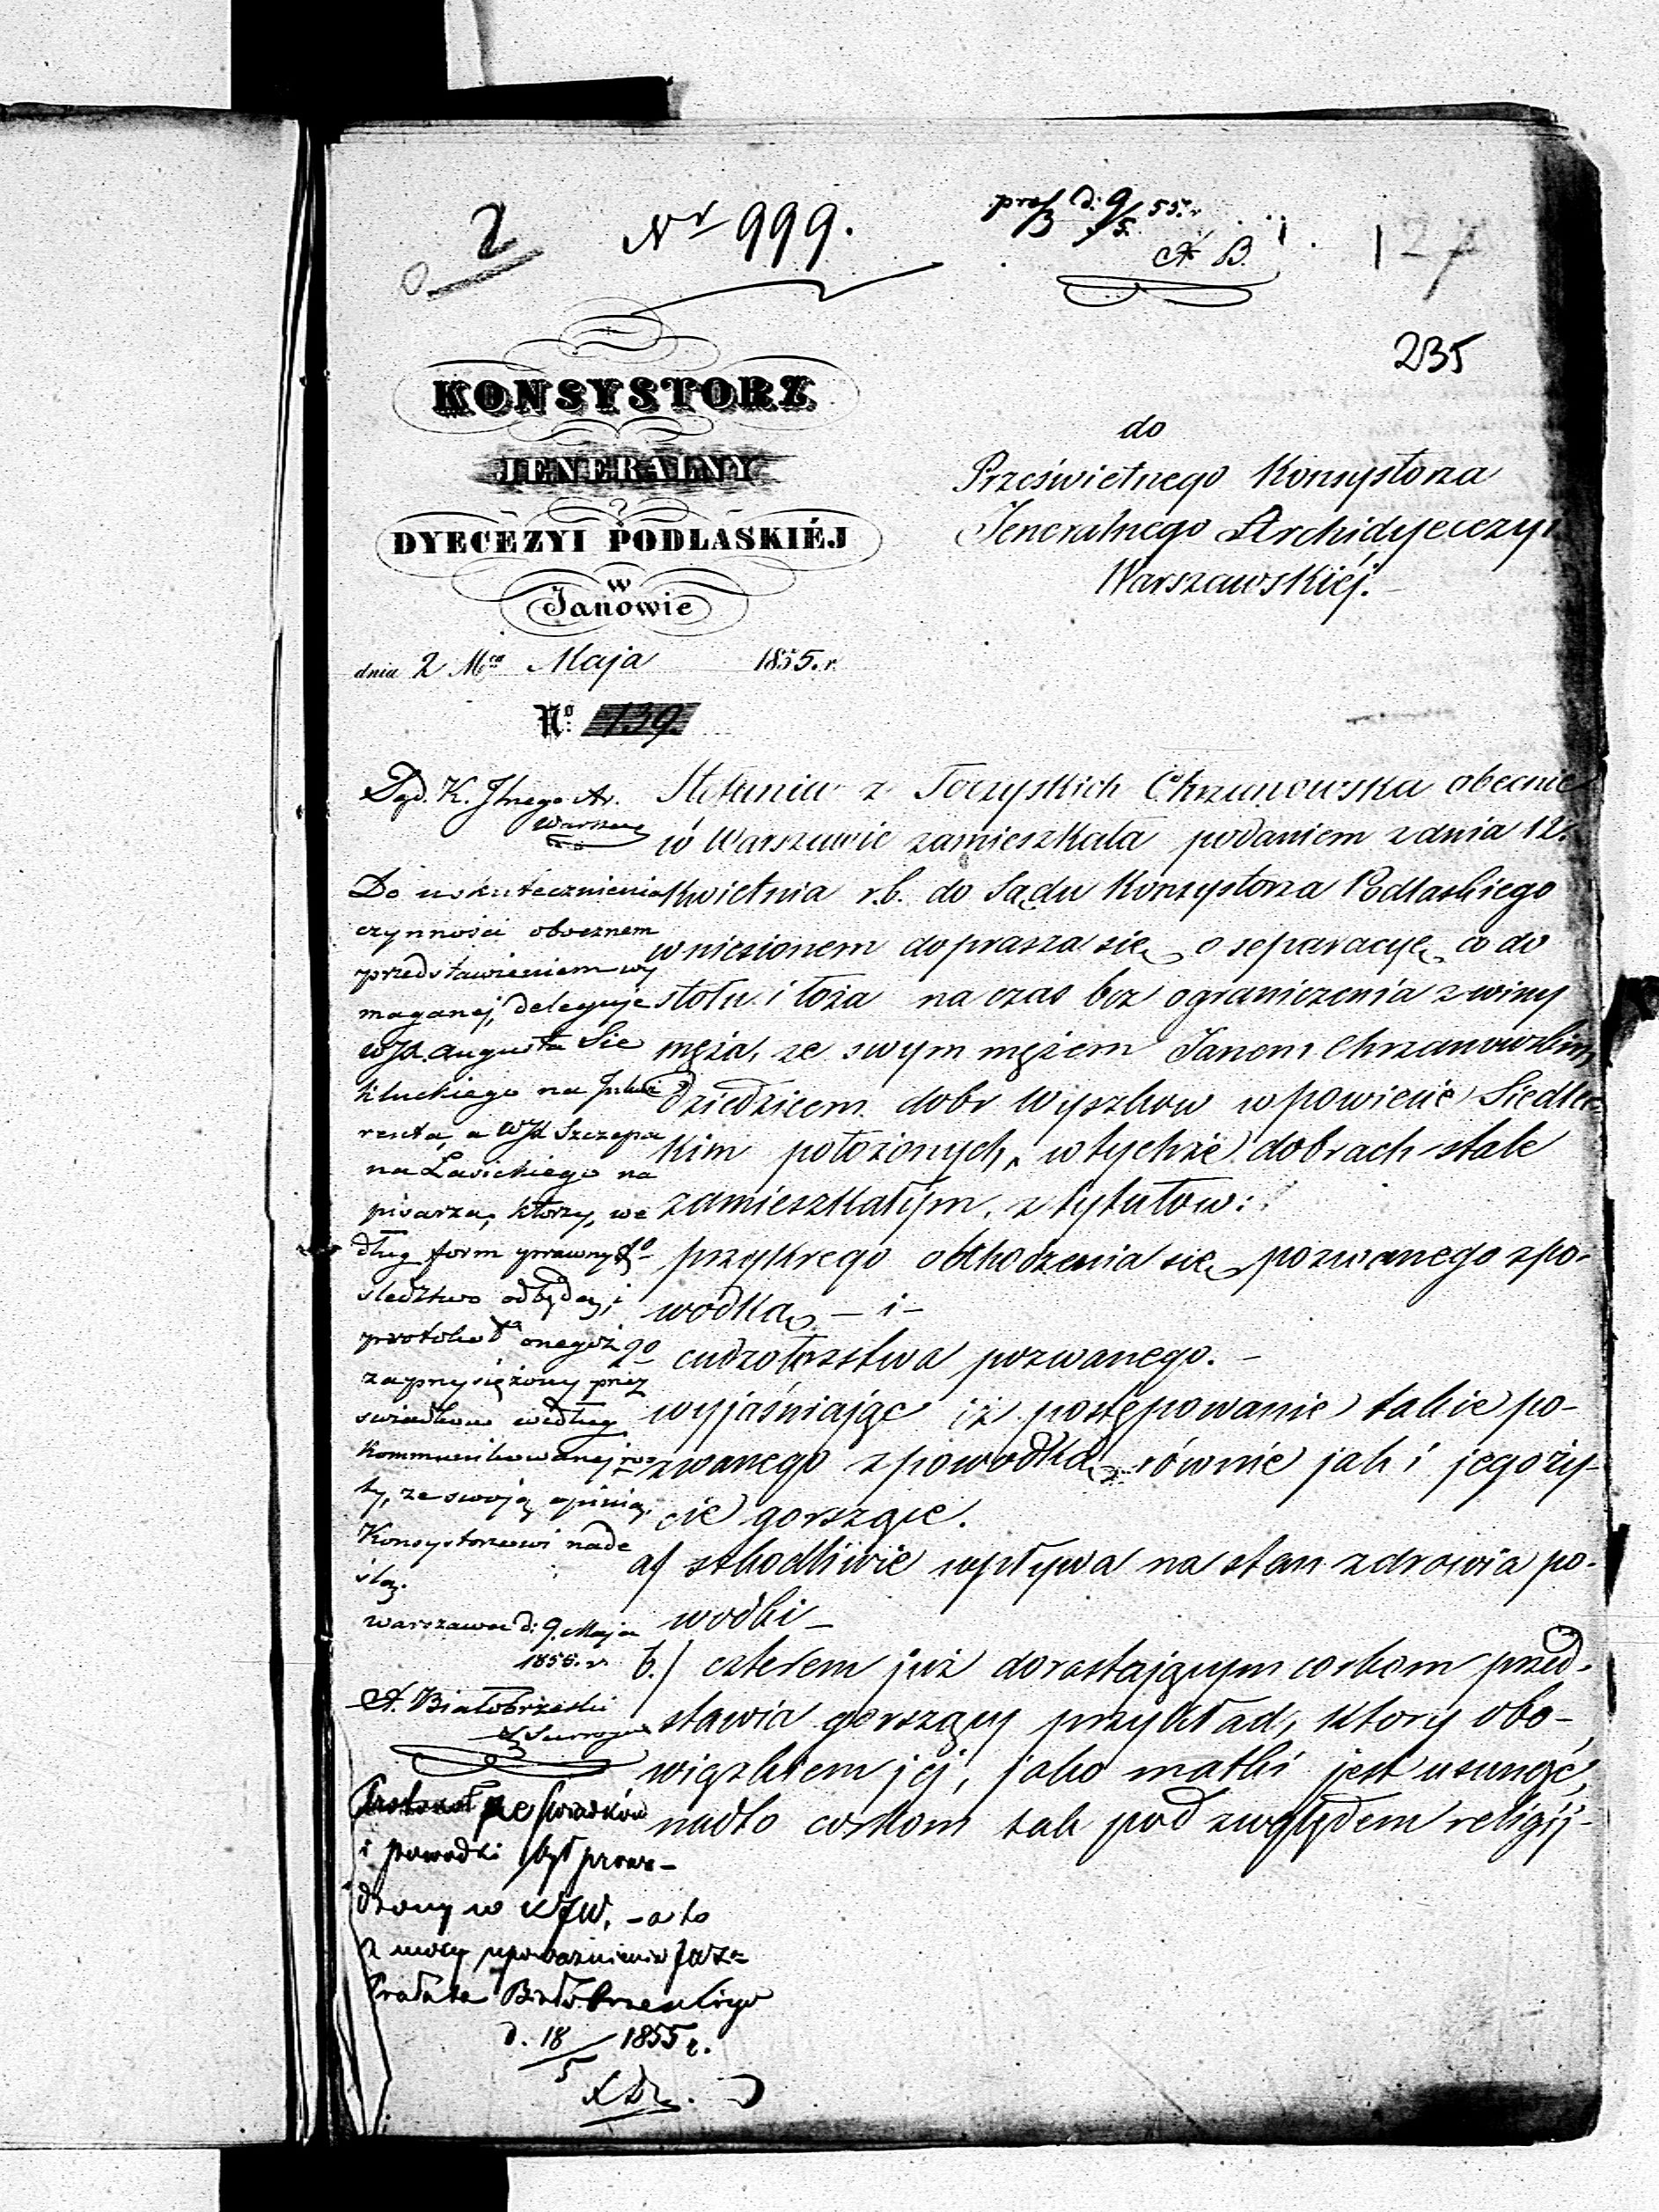 2
Nr 999.
pres d: 9/5 55. r.
A B.
235
KONSYSTORZ
JENERALNY
DYECEZYI PODLASKIÉJ
w
Janowie
dnia 2 Mca Maja 1855. r.
No: 139.
do
Prześwietnego Konsystorza
Jeneralnego Archidyecezyi
Warszawskiéj.
Stefania z Toczyskich Chrzanowska obecnie
w Warszawie zamieszkała podaniem z dnia 12.
Kwietnia r.b. do Sądu Konsystorza Podlaskiego
wniesionem doprasza się o separacyę co do
stołu i łoża na czas bez ograniczenia z winy
męża, ze swym mężem Janem Chrzanowskim
dziedzicem dobr Wyszkow w powiecie Siedlec-
kim położonych, w tychże dobrach stale
zamieszkałym, z tytułow:
1o przykrego obchodzenia się pozwanego z po-
wodką, - i -
2o cudzołoztwa pozwanego. -
wyjaśniając iż postępowanie takie po-
zwanego z powodką, równie jak i jego ży-
cie gorszące.
a) szkodliwie wpływa na stan zdrowia po-
wodki -
b.) czterem już dorastającym corkom przed-
stawia gorszący przykład, ktory obo-
wiązkiem jej, jako matki jest usunąć,
nadto corkom tak pod względem religij-
Sąd. K. Jlnego Ar.
Warszaw
Do uskutecznienia
czynności obocznem
przedstawieniem wy
maganej, deleguje
WJX. Augusta Sie
kluckiego na
a WJX Szczepa
na Ławickiego na
pisarza, ktorzy, we
dług form prawnych
śledztwo odbędą, i
protokoł onegoż
zaprzysiężony przez
swiadkow według
kommunikowanej ro
ty, ze swoją opinią,
Konsystorzowi nade
ślą.
Warszawa d: 9. Maja
1855. r.
A. Białobrzeski
Surrogat
Protokoł ze swiadków
i powodki był prowa-
dzony w KJW. - a to
z mocy upoważnienia JWX.
Prałata Białobrzeskiego
d. 18/5 1855 r.